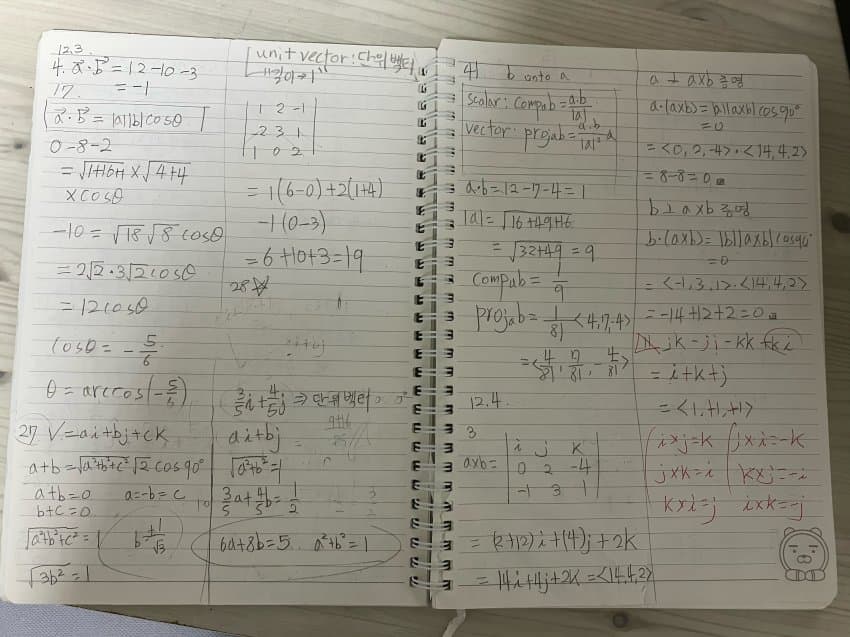 12.3.
4. a⃗·b⃗ = 12-10-3
= -1
17.
a⃗·b⃗ = |a||b|cosθ
0-8-2
×√4+4
×cosθ
-10 = √18 √8 cosθ
= 2√2·3√2 cosθ
= 12cosθ
cosθ = -5/6
θ = arccos(-5/6)
27. V = ai+bj+ck
a+b = √a²+b²+c² √2 cos90°
a+b=0 a=-b=c
b+c=0
√a²+b²+c² = 1 b=±1/√3
√3b² = 1
unit vector : 단위벡터
"길이→1"
1 2 -1
-2 3 1
1 0 2
= 1(6-0)+2(1+4)
-1(0-3)
= 6+10+3=19
28 ☆
3/5i+4/5j ⇒ 단위벡터
ai+bj
√a²+b²=1
3/5a+4/5b=1/2
6a+8b=5 a²+b²=1
41 b onto a
scalar: compab = a·b/|a|
vector: projab = a·b/|a|² a
a·b = 12-7-4 = 1
|a| = √16+49+16
= √32+49 = 9
compab = 1/9
projab = 1/81 <4,7,-4>
= <4/81, 7/81, -4/81>
12.4.
3
axb = | i j k
0 2 -4
-1 3 1 |
= (2+12)i+(4)j+2k
= 14i+4j+2k = <14,4,2>
a ⊥ axb 증명
a·(axb) = |a||axb|cos90°
= 0
= <0, 2, -4>·<14,4,2>
= 8-8=0
b ⊥ axb 증명
b·(axb) = |b||axb|cos90°
= 0
= <-1,3,1>·<14,4,2>
= -14+12+2=0
jk-jj-kk+ki
= i+k+j
= <1,+1,+1>
i×j=k j×i=-k
j×k=i k×j=-i
k×i=j i×k=-j